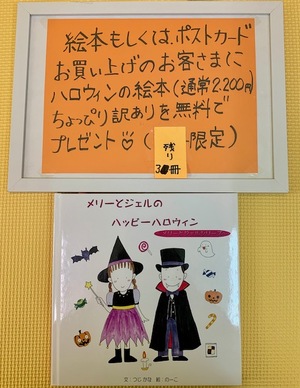 絵本もしくは、ポストカード
お買い上げのお客さまに
ハロウィンの絵本(通常2,200円)
ちょっぴり訳ありを無料で
プレゼント♡(
限定)
残り
冊
メリーとジェルの
ハッピーハロウィン
文:つじかな 絵:のーこ